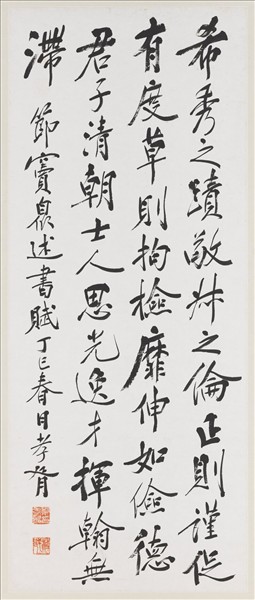 希秀之蹟敬叔之倫正則謹促
有度草則拘檢靡伸如儉德
君子清朝士人思光逸才揮翰無
滯 節竇臮述書賦丁巳春日孝胥